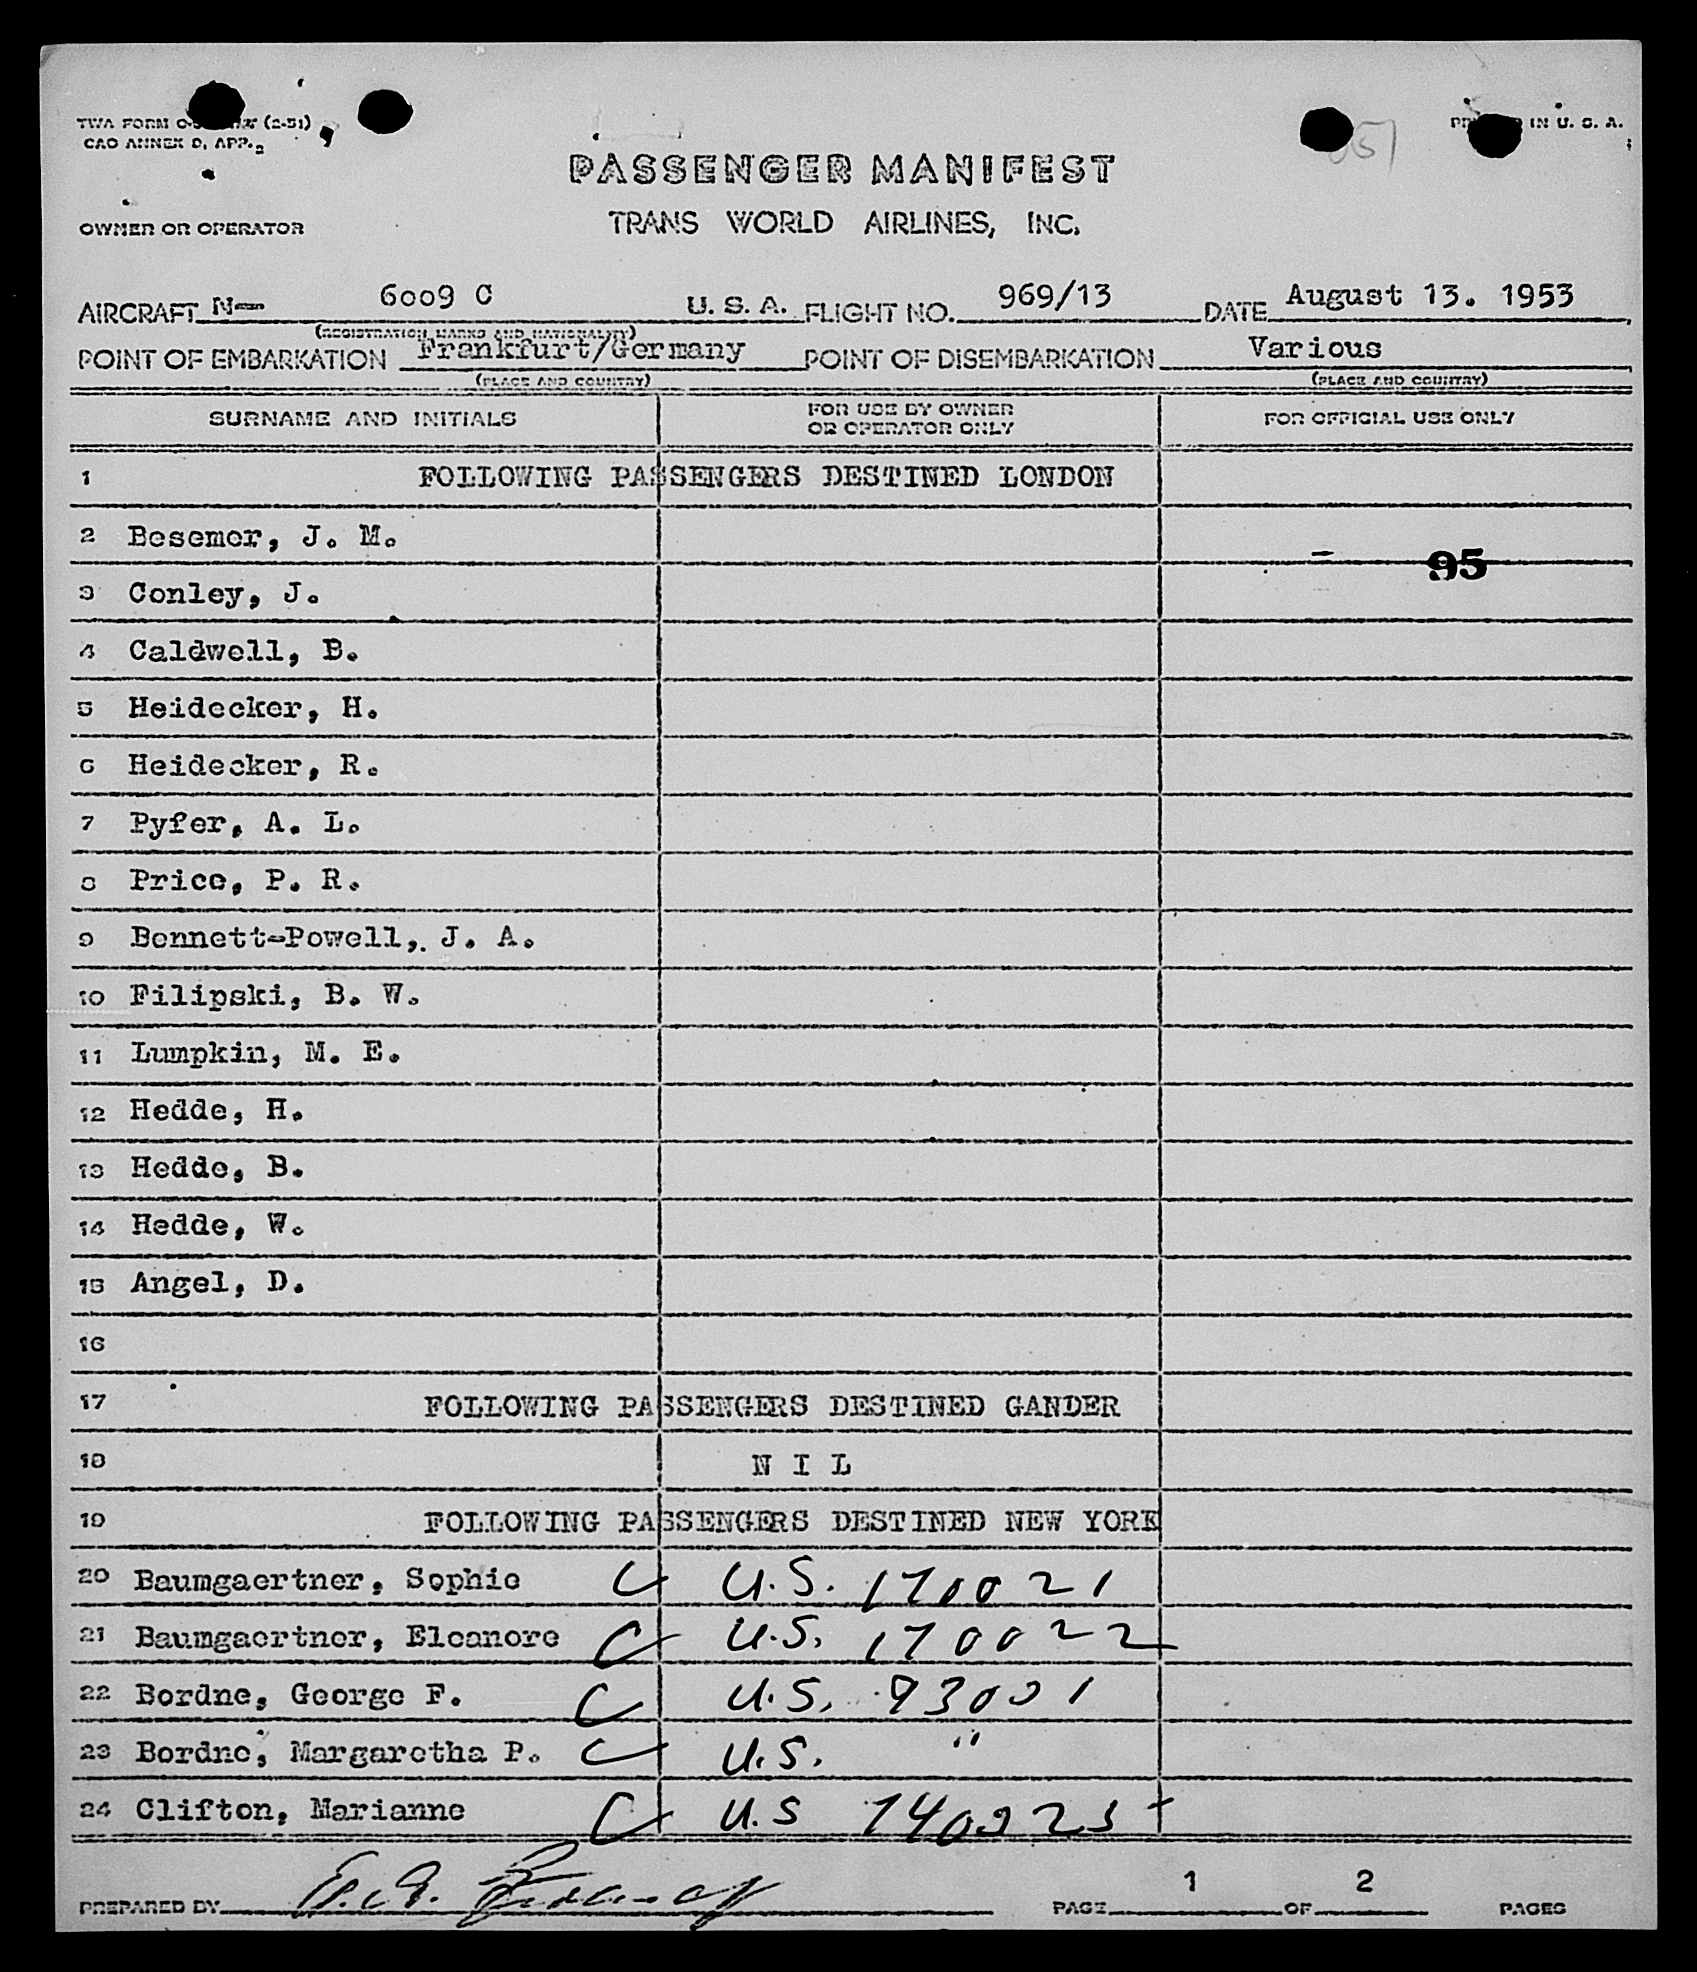 TWA FORM (2-51)
CAO ANNEX D, APP. 2
IN U. S. A.
PASSENGER MANIFEST
OWNER OR OPERATOR
TRANS WORLD AIRLINES, INC.
AIRCRAFT N- 6009 C U. S. A. FLIGHT NO. 969/13 DATE August 13. 1953
(REGISTRATION MARKS AND NATIONALITY)
POINT OF EMBARKATION Frankfurt/Germany POINT OF DISEMBARKATION Various
(PLACE AND COUNTRY) (PLACE AND COUNTRY)
SURNAME AND INITIALS FOR USE BY OWNER OR OPERATOR ONLY FOR OFFICIAL USE ONLY
1 FOLLOWING PASSENGERS DESTINED LONDON
2 Besemer, J. M.
95
3 Conley, J.
4 Caldwell, B.
5 Heidecker, H.
6 Heidecker, R.
7 Pyfer, A. L.
8 Price, P. R.
9 Bennett-Powell, J. A.
10 Filipski, B. W.
11 Lumpkin, M. E.
12 Hedde, H.
13 Hedde, B.
14 Hedde, W.
15 Angel, D.
16
17 FOLLOWING PASSENGERS DESTINED GANDER
18 N I L
19 FOLLOWING PASSENGERS DESTINED NEW YORK
20 Baumgaertner, Sophie C U.S. 170021
21 Baumgaertner, Eleanore C U.S. 170022
22 Bordne, George F. C U.S. 93001
23 Bordne, Margaretha P. C U.S. "
24 Clifton, Marianne C U.S
PREPARED BY PAGE 1 OF 2 PAGES